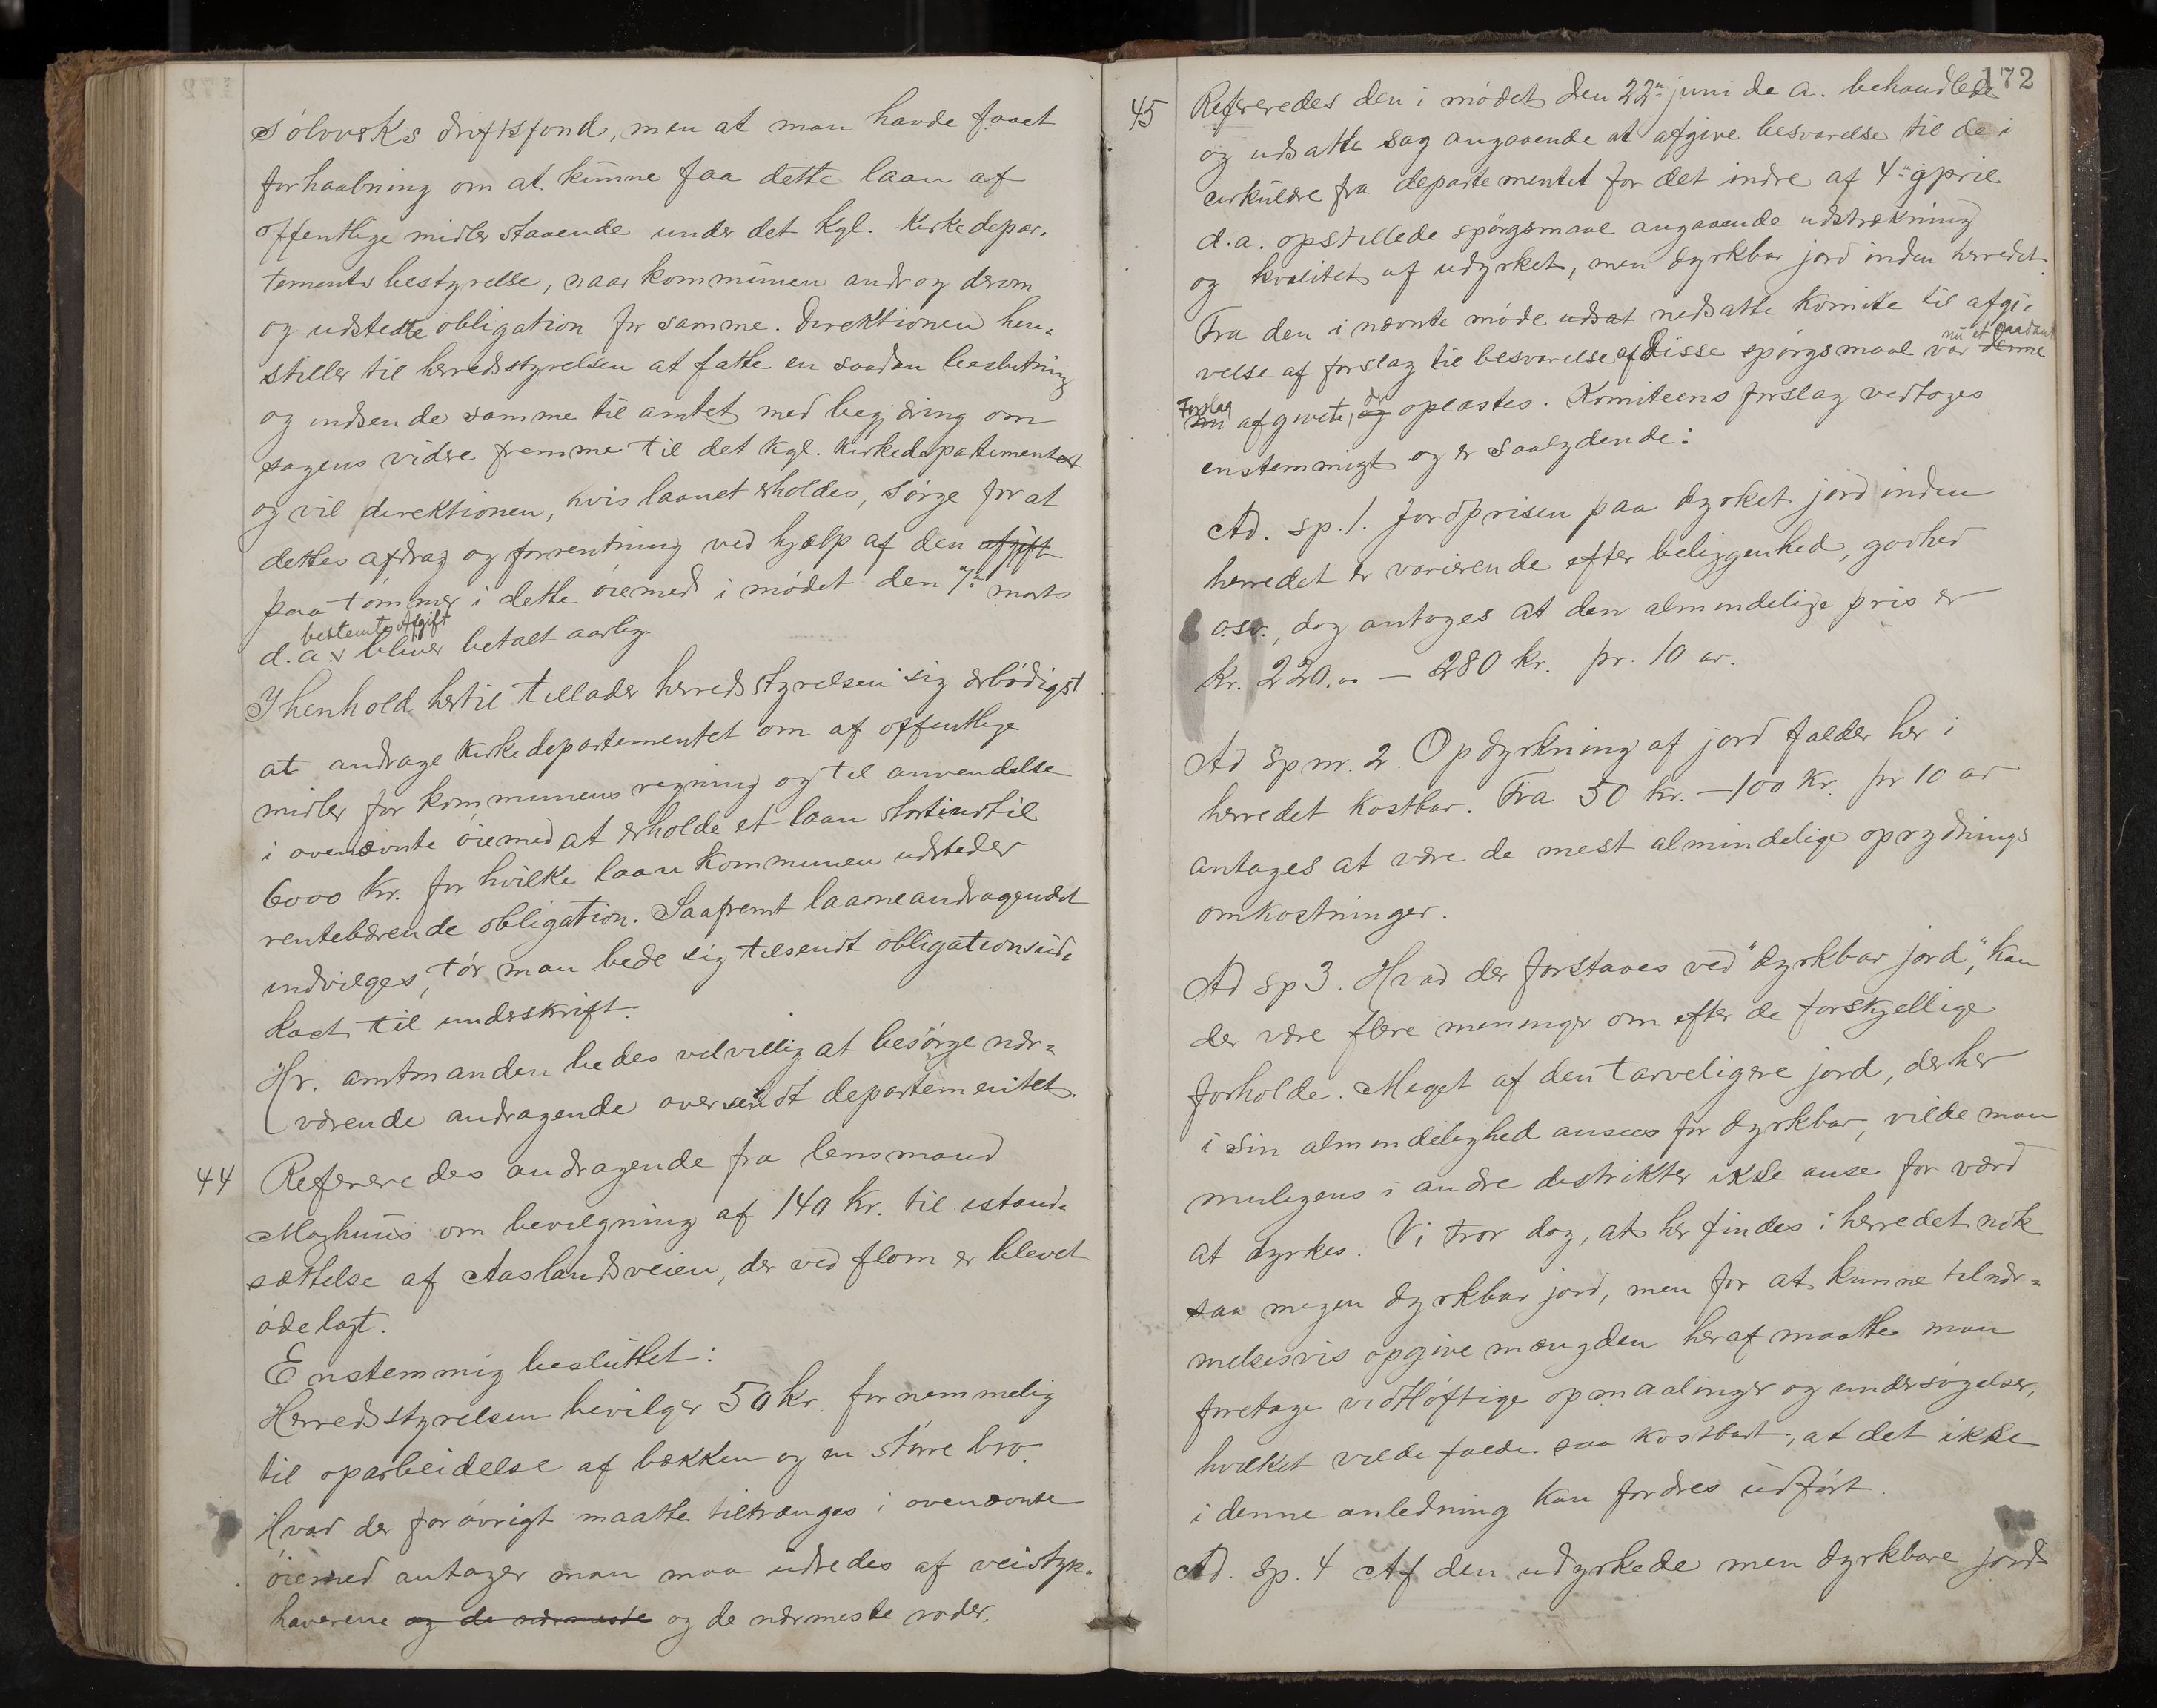 Sölvverks driftsfond, men at man havde faaet
forhaabning om at kunne faa dette laan af
offentlige midler staaende under det kgl. kirkedepar-
tements bestyrelse, naar kommunen androg derom
og udstedte obligation for samme. Direktionen hen-
stiller til herredsstyrelsen at fatte en saadan beslutning
og indsende samme til amtet med begjæring om
sagens videre fremme til det kgl. kirkedepartementet
og vil direktionen, hvis laanet erholdes, sörge for at
dettes afdrag og forrentning ved hjælp af den afgift
paa tömmer i dette öiemed i mödet den 7de marts
bestemte Afgift
d.a. bliver betalt aarlig.
I henhold hertil tillader herredsstyrelsen sig ærbödigst
at andrage kirkedepartementet om af offentlige
midler for kommunens regning og til anvendelse
i ovennævnte öiemed at erholde et laan stort indtil
6000 kr. for hvilke laan kommunen udsteder
rentebærende obligation. Saafremt laaneandragendet
indvilges, tör man bede sig tilsendt obligationsud-
kast til underskrift.
Hr. amtmanden bedes velvillig at besörge nær-
værende andragende oversendt departementet.
44 Refereredes andragende fra lensmand
Moghuus om bevilgning af 140 kr. til istand-
sættelse af Aaslandsveien, der ved flom er blevet
ödelagt.
Enstemmig besluttet:
Herredsstyrelsen bevilger 50 kr. fornemmelig
til oparbeidelse af bækken og en större bro.
Hvad der forövrigt maatte tiltrænges i ovennævnte
öiemed antager man maa udredes af veistyk-
haverene og de nærmeste og de nærmeste roder.
172
45 Refereredes den i mödet den 22de juni de a. behandlede
og udsatte sag angaaende at afgive besvarelse til de i
cirkulære fra departementet for det indre af 4de april
d.a. opstillede spörgsmaal angaaende udstrækning
og kvalitet af udyrket, men dyrkbar jord inden herredet.
Fra den i nævnte möde udsat nedsatte komite til afgi-
velse af forslag til besvarelse af disse spörgsmaal var denne
nu et saadant
Forslag
nu afgivet, og oplæstes. Komiteens forslag vedtoges
der
enstemmigt og er saalydende:
Ad. sp. 1. Jordprisen paa dyrket jord inden
herredet er varierende efter beliggenhed, godhed
o.sv., dog antages at den almindelige pris er
kr. 220.00 — 280 kr. pr. 10 ar.
Ad spm. 2. Opdyrkning af jord falder her i
herredet kostbar. Fra 50 kr. — 100 kr. pr 10 ar
antages at være de mest almindelige oprydnings
omkostninger.
Ad sp 3. Hvad der forstaaes ved "dyrkbar jord", kan
der være flere meninger om efter de forskjellige
forholde. Meget af den tarveligere jord, der her
i sin almindelighed ansees for dyrkbar, vilde man
muligens i andre distrikter ikke anse for værd
at dyrkes. Vi tror dog, at her findes i herredet nok
saa megen dyrkbar jord, men for at kunne tilnær-
melsesvis opgive mængden heraf maatte man
foretage vidtlöftige opmaalinger og undersögelser,
hvilket vilde falde saa kostbart, at det ikke
i denne anledning kan fordres udfört.
Ad. sp. 4 Af den udyrkede men dyrkbare jord